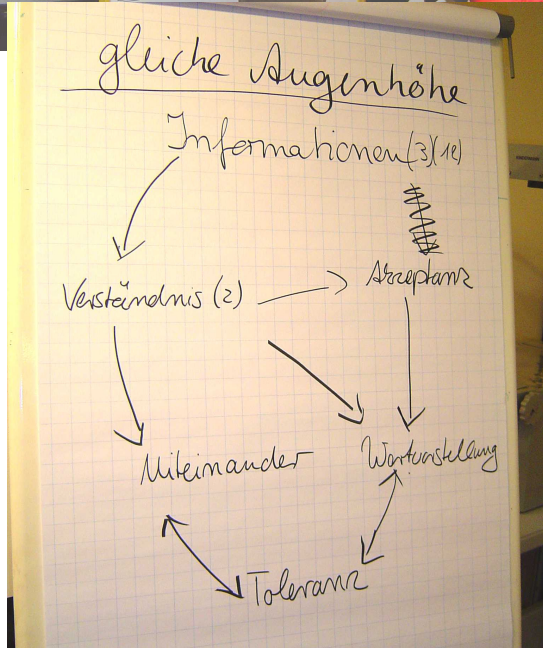 gleiche Augenhöhe
Informationen (3)(12)
Verständnis (2)
Akzeptanz
Miteinander
Wertvorstellung
Toleranz